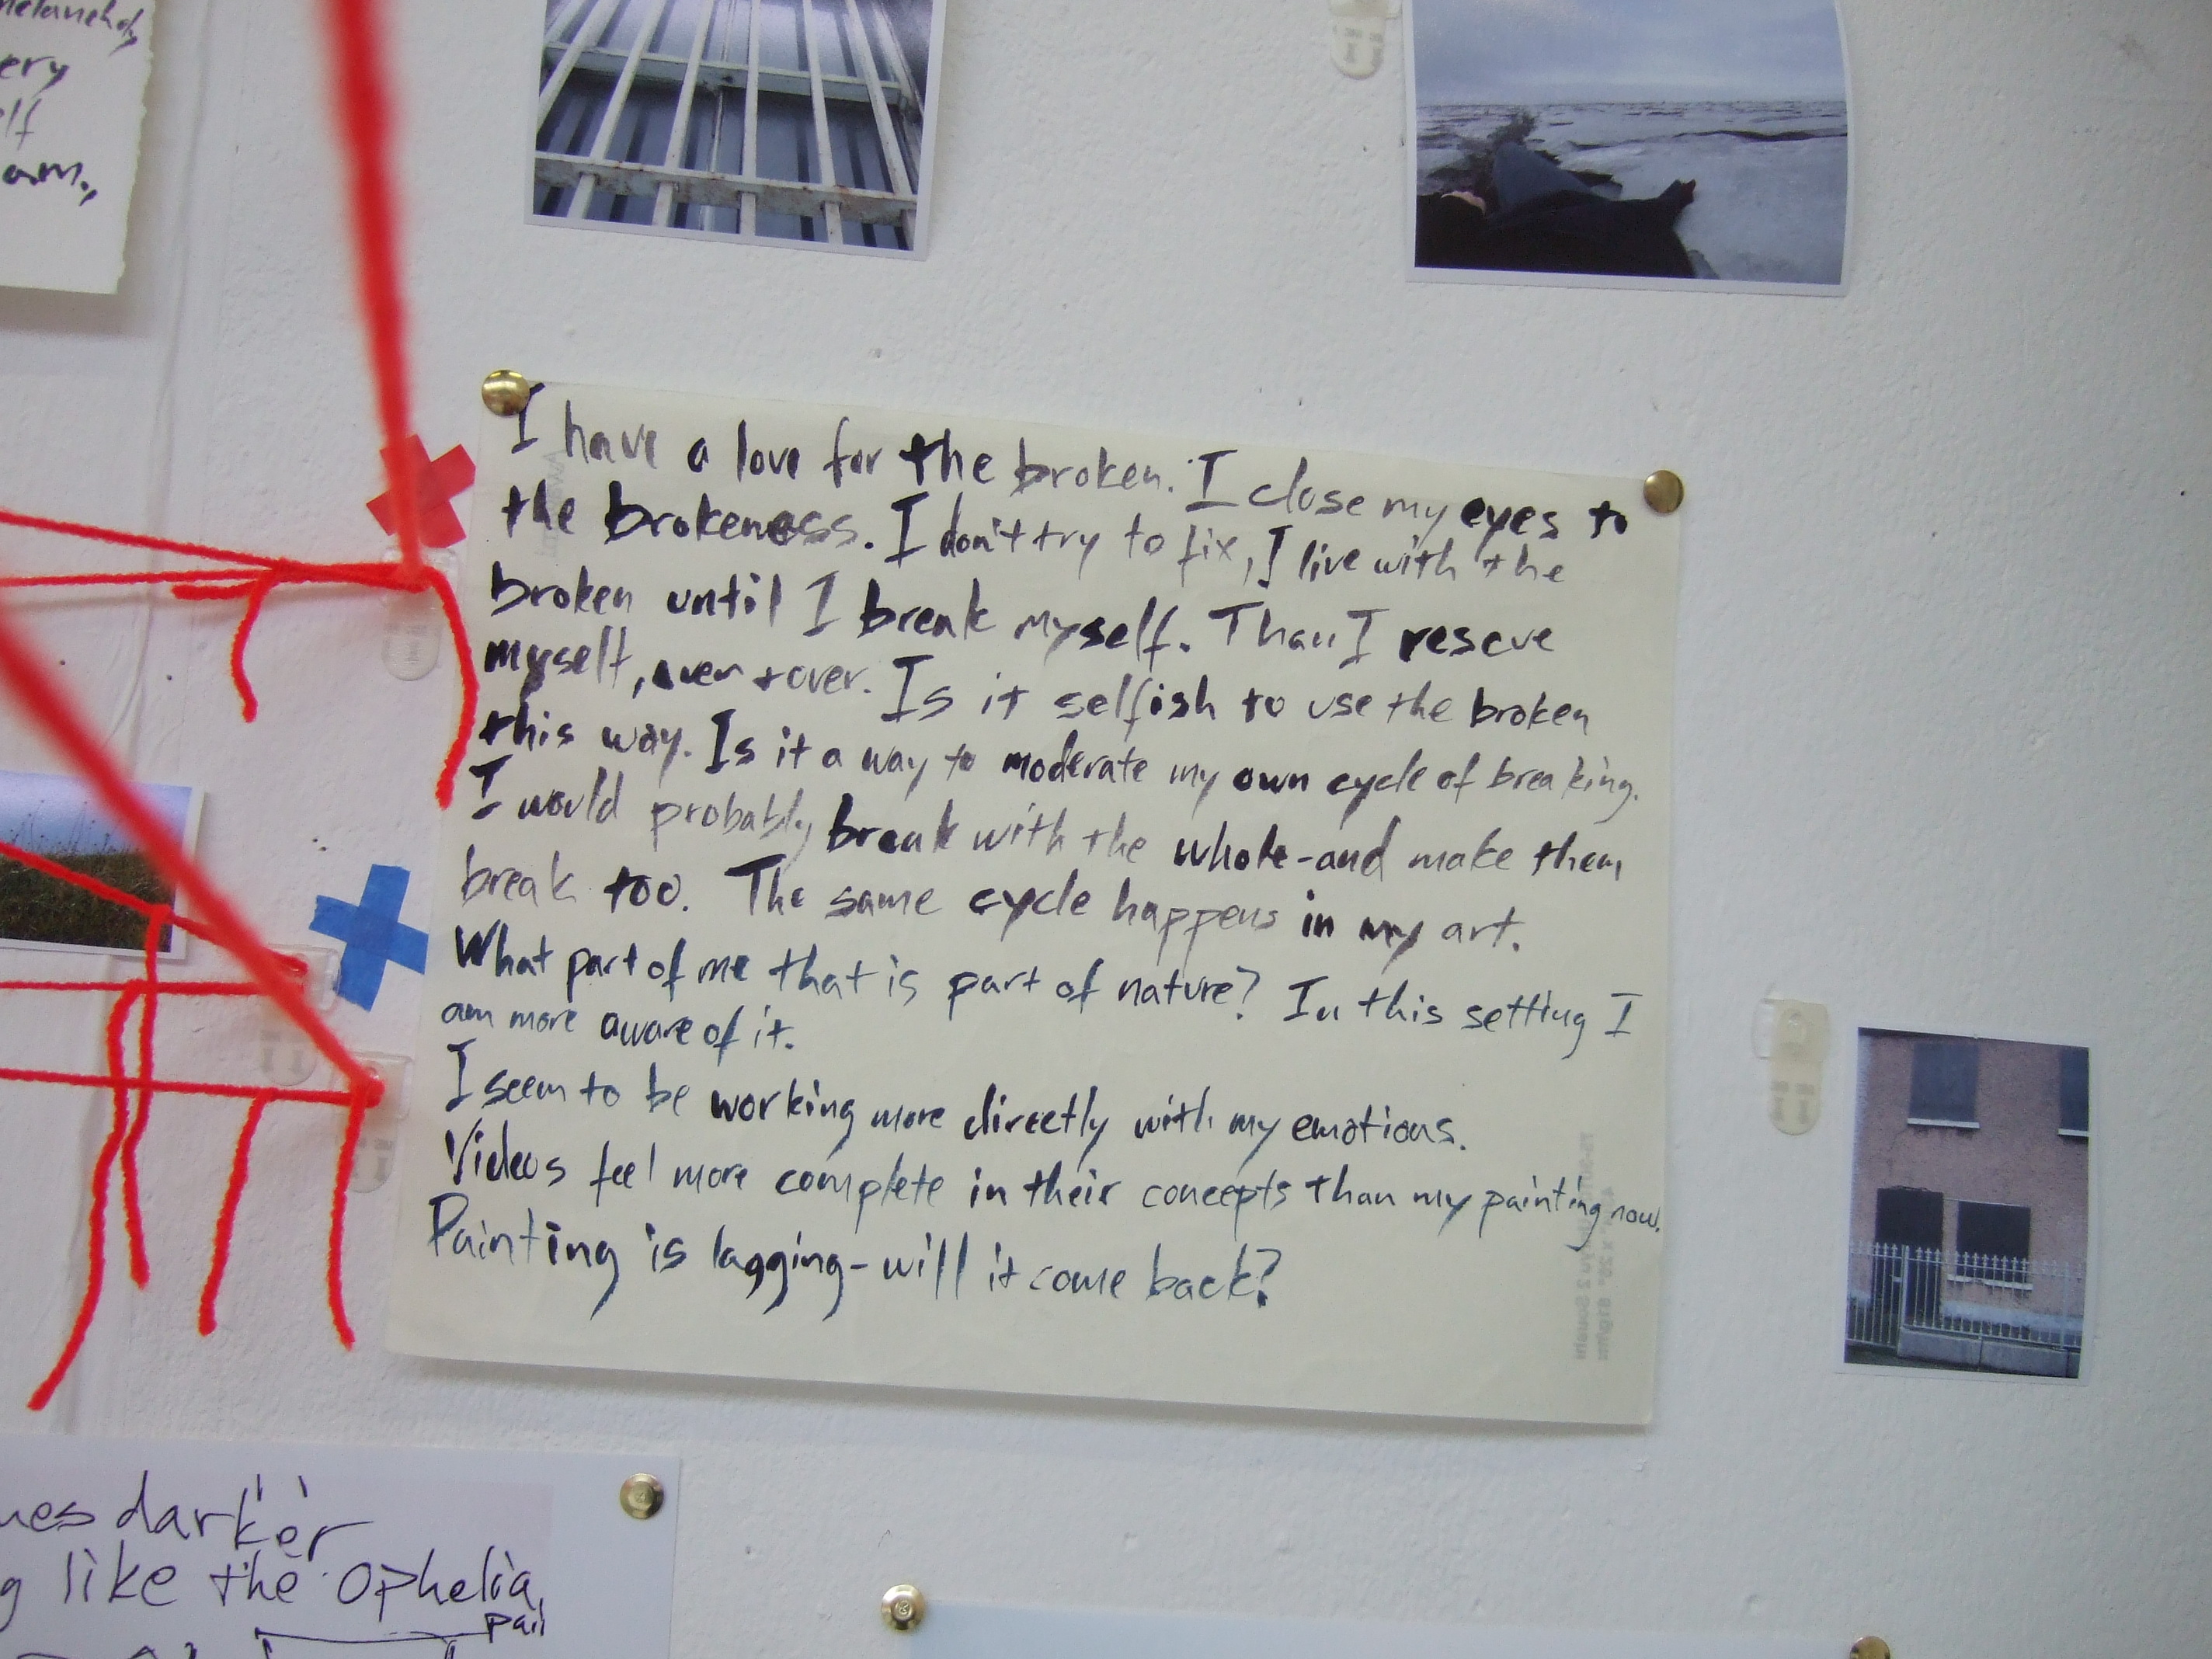 melancholy
ery
lf
am.,
I have a love for the broken. I close my eyes to
the brokeness. I don't try to fix, I live with the
broken until I break myself. Than I rescue
myself, over + over. Is it selfish to use the broken
this way. Is it a way to moderate my own cycle of breaking.
I would probably break with the whole - and make them
break too. The same cycle happens in my art.
What part of me that is part of nature? In this setting I
am more aware of it.
I seem to be working more directly with my emotions.
Videos feel more complete in their concepts than my painting now.
Painting is lagging - will it come back?
ues darker
g like the Ophelia,
pail